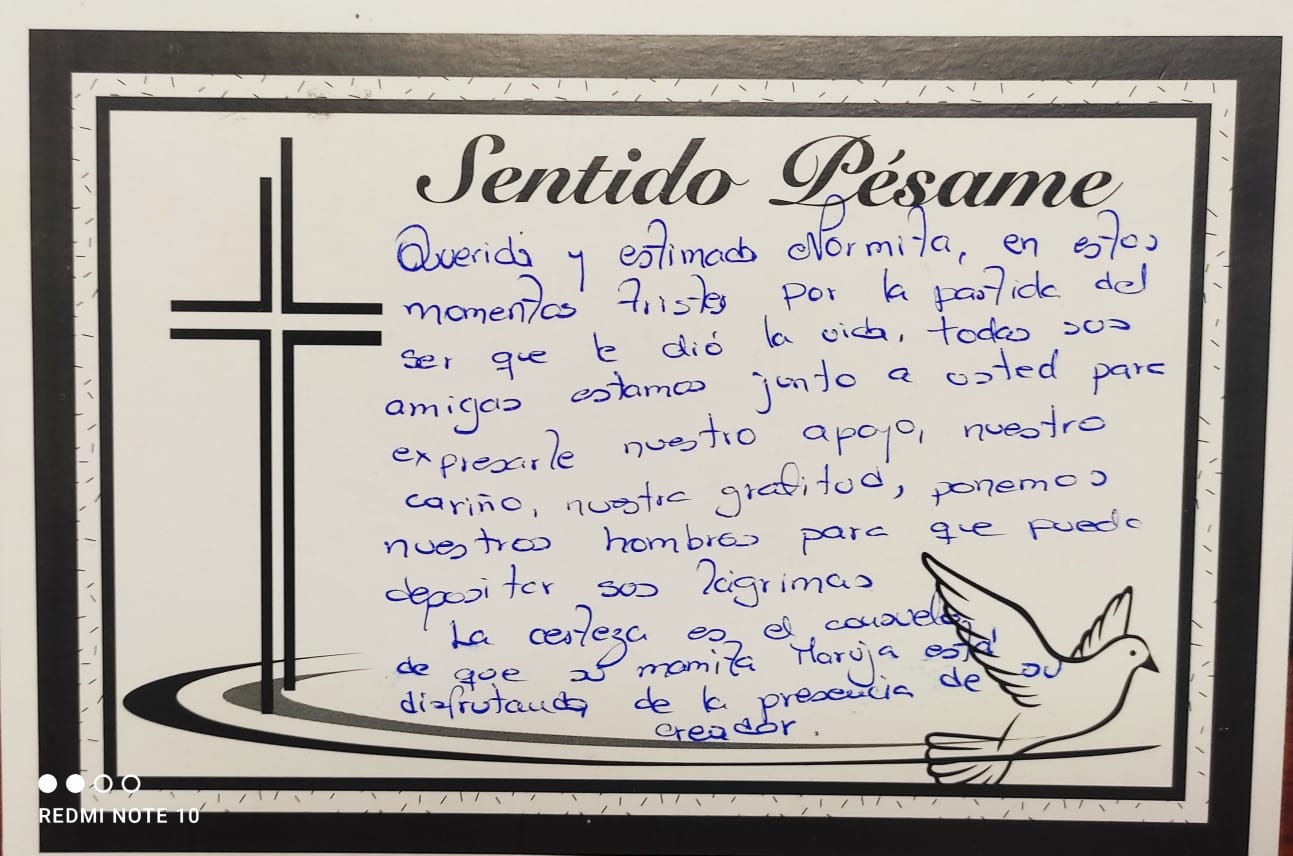 Sentido Pésame
Querida y estimada Normita, en estos
momentos tristes por la partida del
ser que le dió la vida, todas sus
amigas estamos junto a usted para
expresarle nuestro apoyo, nuestro
cariño, nuestra gratitud, ponemos
nuestros hombros para que pueda
depositar sus lágrimas
La certeza es el consuelo
de que su mamita Maruja está
disfrutando de la presencia de su
creador.
REDMI NOTE 10